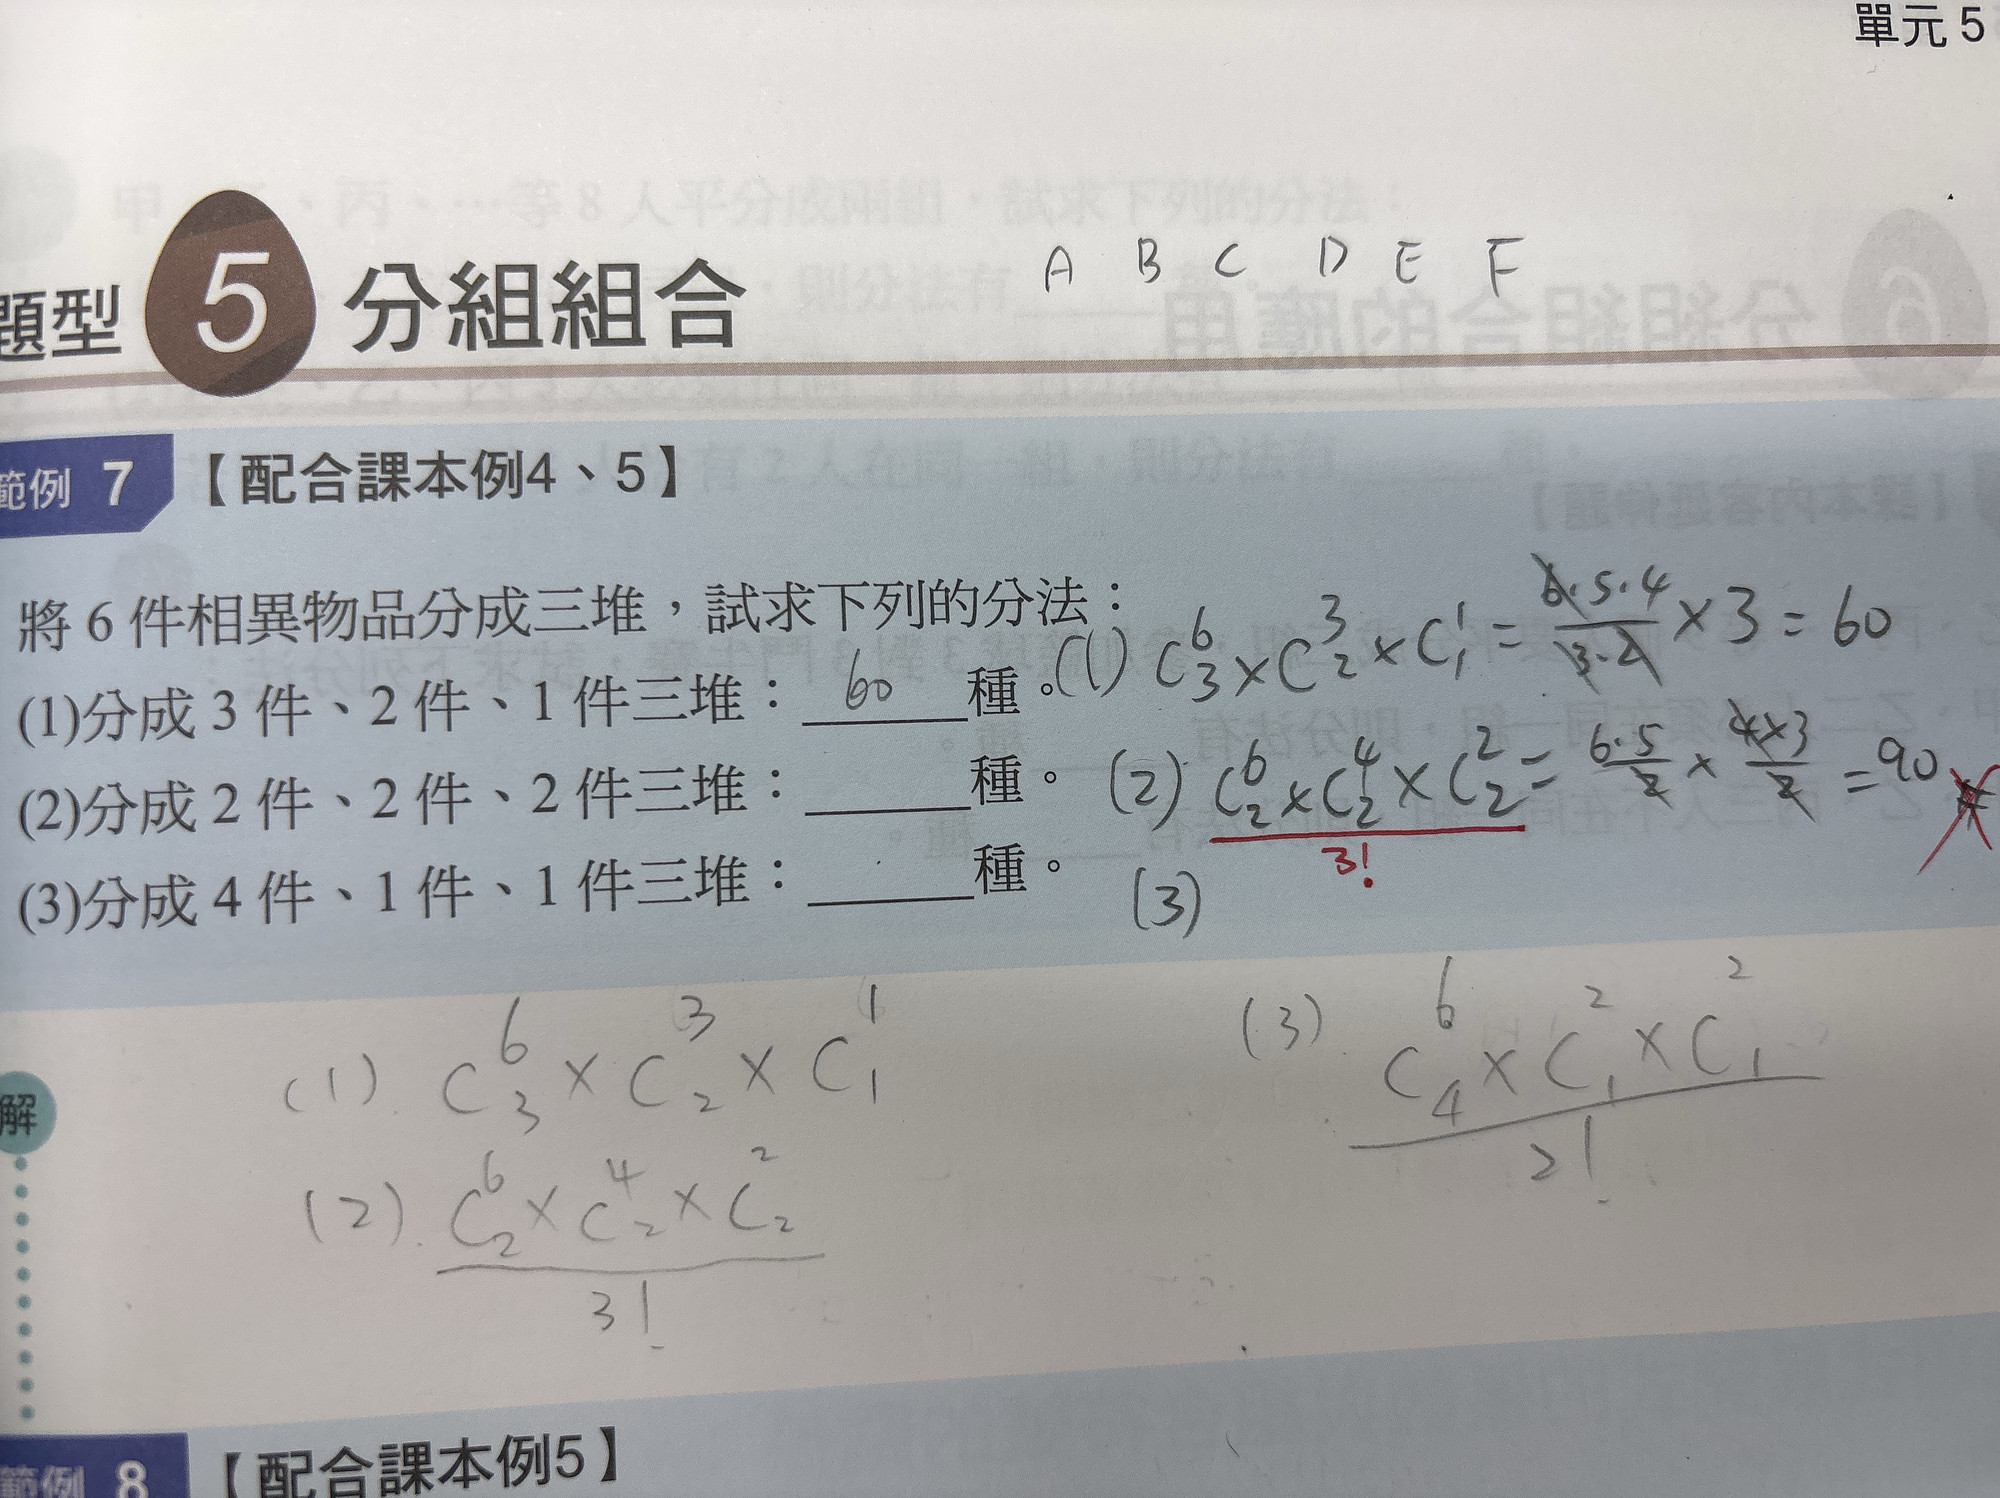 單元 5
A B C D E F
題型 5 分組組合
範例 7 【配合課本例4、5】
將 6 件相異物品分成三堆,試求下列的分法:
(1)分成 3 件、2 件、1 件三堆:60種。
(2)分成 2 件、2 件、2 件三堆:______種。
(3)分成 4 件、1 件、1 件三堆:______種。
(1) C^6_3 × C^3_2 × C^1_1 = 6·5·4/3·2 × 3 = 60
(2) C^6_2 × C^4_2 × C^2_2 / 3! = 6·5/2 × 4×3/2 = 90
(3)
解
(1). C^6_3 × C^3_2 × C^1_1
(2). C^6_2 × C^4_2 × C^2_2 / 3!
(3). C^6_4 × C^2_1 × C^2_1 / 2!
範例 8 【配合課本例5】